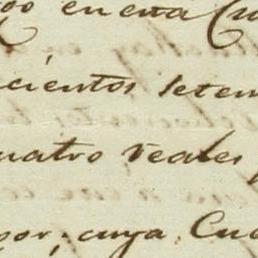 en esta
cientos seten
uatro reales
por, cuya. Cua